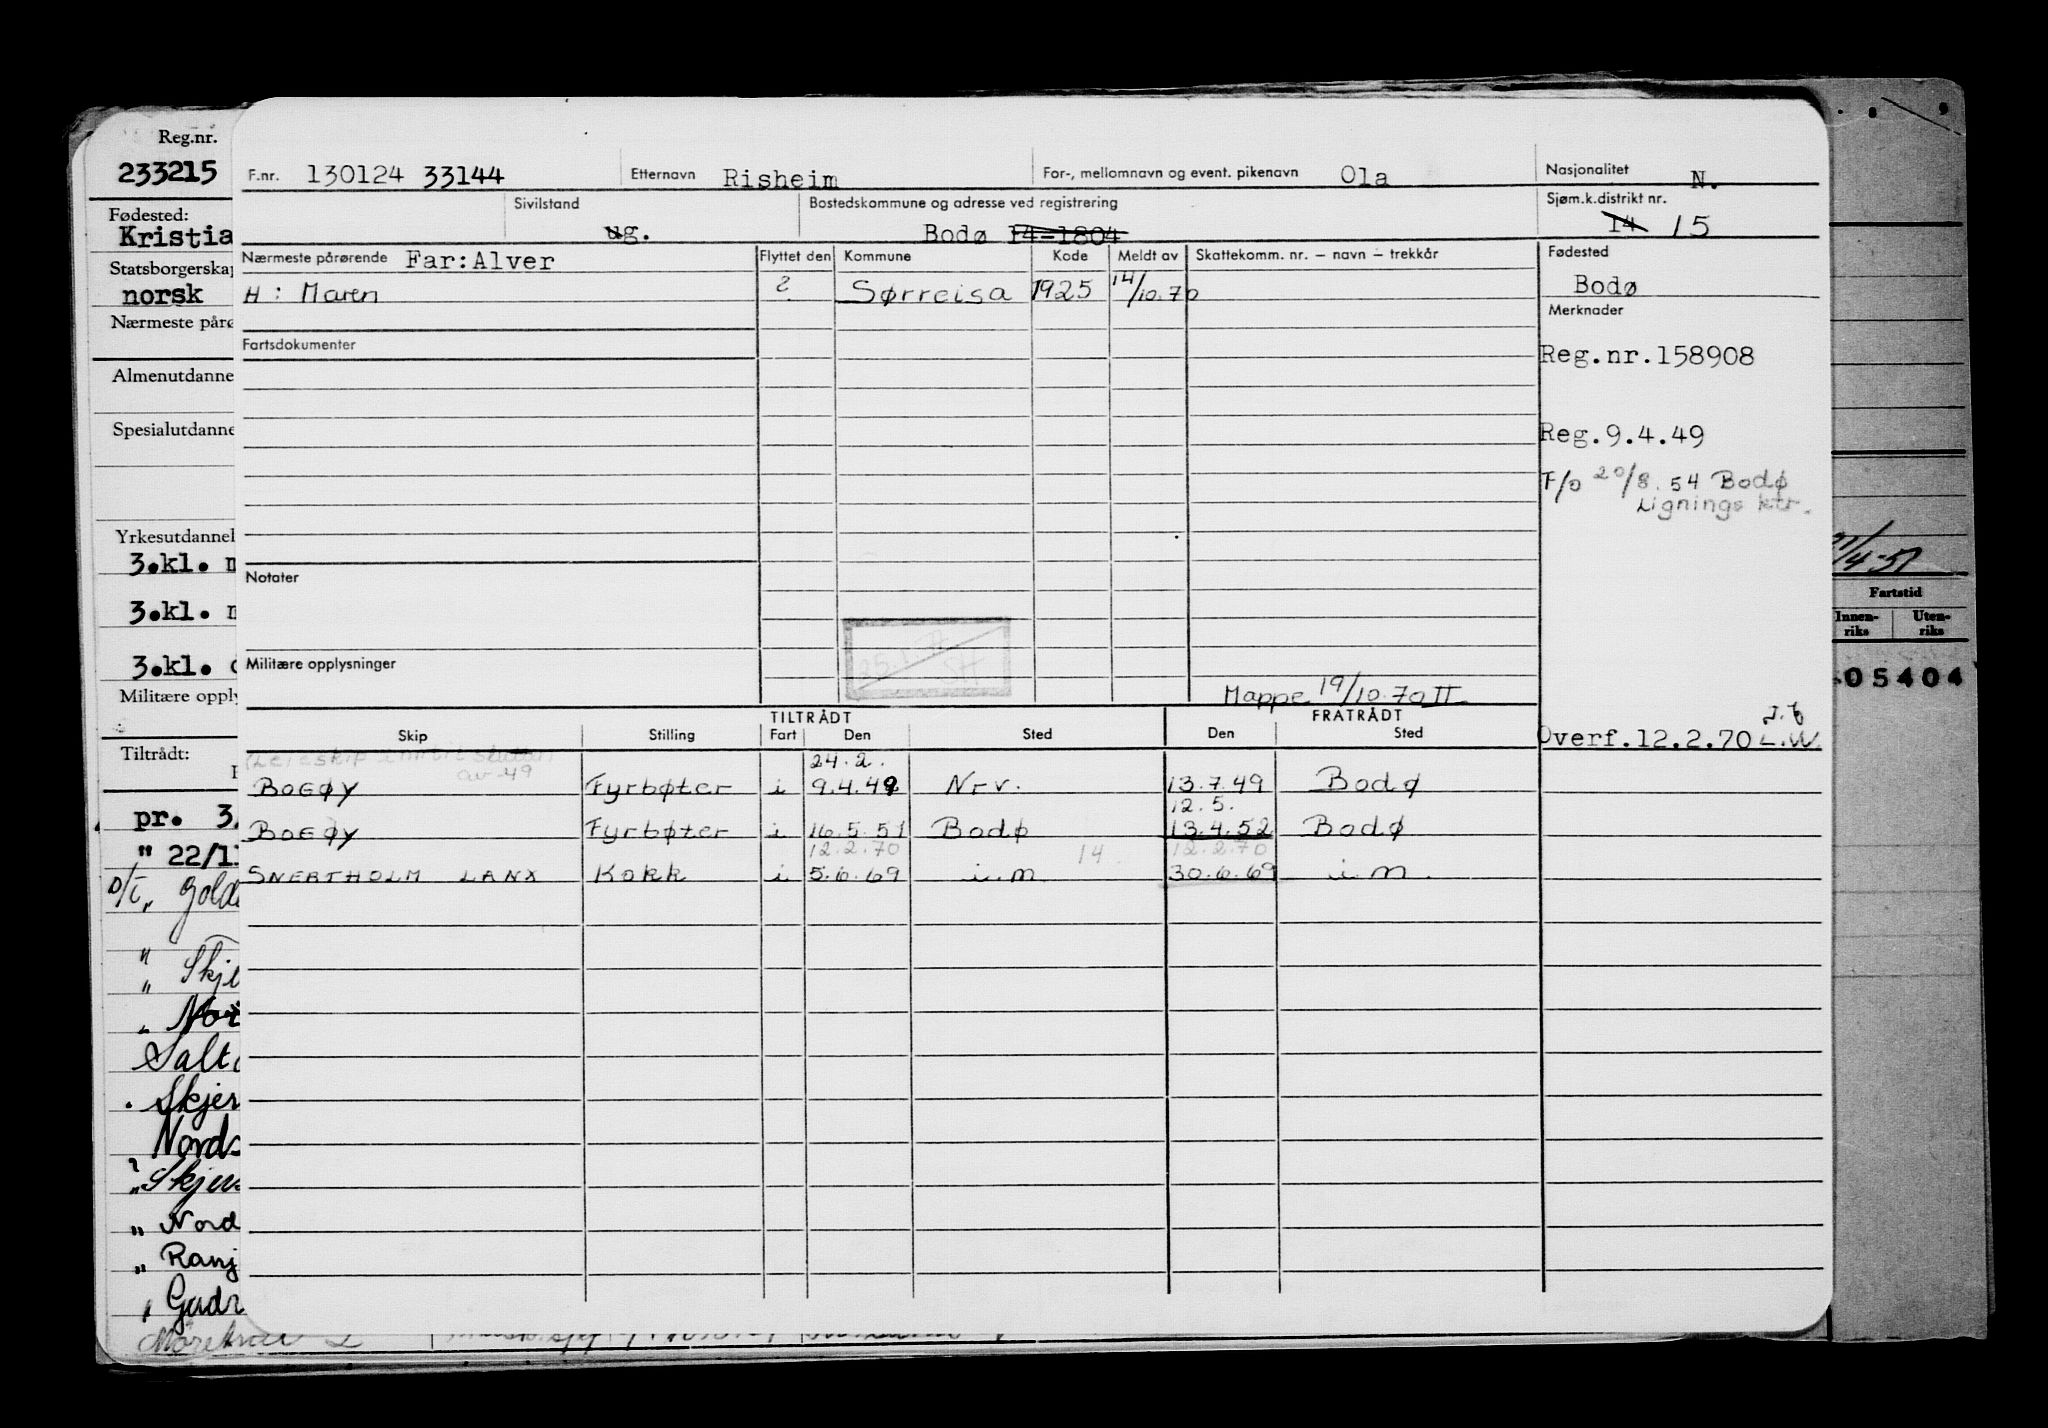 Reg.nr.
233215
Fødested:
Kristia
Statsborgerskap
norsk
Nærmeste påre
Almenutdanne
Spesialutdanne
Yrkesutdannel
3.kl. m
3.kl. m
3.kl.
Militære opply
Tiltrådt:
pr. 3.
" 22/1
Skj
Salt
Skjer
Nords
Skjer
" Nord
" Ranj
F.nr. 130124 33144 Etternavn Risheim For-, mellomnavn og event. pikenavn Ola Nasjonalitet N.
Sivilstand ug. Bostedskommune og adresse ved registrering Bodø 14-1804 Sjøm.k.distrikt nr. 14 15
Nærmeste pårørende Far:Alver Flyttet den Kommune Kode Meldt av Skattekomm. nr. – navn – trekkår Fødested
H: Maren ? Sørreisa 1925 14/10.70 Bodø
Merknader
Fartsdokumenter Reg.nr.158908
Reg.9.4.49
F/o 20/8.54 Bodø
Lignings ktr.
Notater
Militære opplysninger
Mappe 19/10.70 II
TILTRÅDT FRATRÅDT
Skip Stilling Fart Den Sted Den Sted Overf.12.2.70 L.W.
av 49 24.2.
BOGØY Fyrbøter i 9.4.49 Nrv. 13.7.49 Bodø
12.5.
BOGØY Fyrbøter i 16.5.51 Bodø 13.4.52 Bodø
12.2.70 14 12.2.70
SNERTHOLM LANX Kokk i 5.6.69 i.m. 30.6.69 i.m.
21/4-51
Fartstid
Innenriks Utenriks
05404